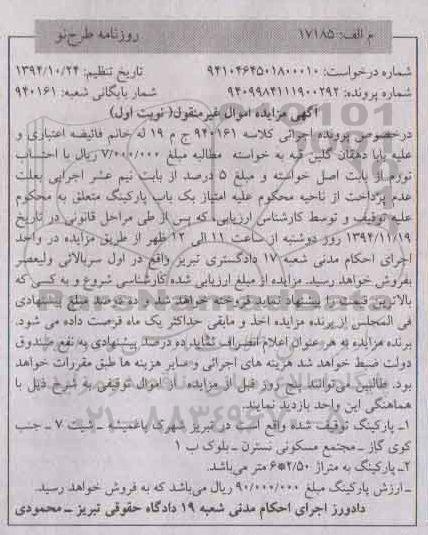 م الف: ۱۷۱۸۵ روزنامه طرح‌نو
شماره درخواست: ۹۴۱۰۴۶۴۵۰۱۸۰۰۰۱۰ تاریخ تنظیم: ۱۳۹۴/۱۰/۲۴
شماره پرونده: ۹۴۰۹۹۸۴۱۱۱۹۰۰۲۹۲ شماره بایگانی شعبه: ۹۴۰۱۶۱
آگهی مزایده اموال غیرمنقول( نوبت اول)
درخصوص پرونده اجرائی کلاسه ۹۴۰۱۶۱ ج م ۱۹ له خانم فائیضه اعتباری و
علیه بابا دهقان گلین قیه به خواسته مطالبه مبلغ ۷/۰۰۰/۰۰۰ ریال با احتساب
تورم از بابت اصل خواسته و مبلغ ۵ درصد از بابت نیم عشر اجرایی بعلت
عدم پرداخت از ناحیه محکوم علیه امتیاز یک باب پارکینگ متعلق به محکوم
علیه توقیف و توسط کارشناس ارزیابی، که پس از طی مراحل قانونی در تاریخ
۱۳۹۴/۱۱/۱۹ روز دوشنبه از ساعت ۱۱ الی ۱۲ ظهر از طریق مزایده در واحد
اجرای احکام مدنی شعبه ۱۷ دادگستری تبریز واقع در اول سربالائی ولیعصر
بفروش خواهد رسید. مزایده از مبلغ ارزیابی شده کارشناسی شروع و به کسی که
بالاترین قیمت را پیشنهاد نماید فروخته خواهد شد و ده درصد مبلغ پیشنهادی
فی المجلس از برنده مزایده اخذ و مابقی حداکثر یک ماه فرصت داده می شود.
برنده مزایده به هر عنوان اعلام انصراف نماید ده درصد پیشنهادی به نفع صندوق
دولت ضبط خواهد شد هزینه های اجرائی و سایر هزینه ها طبق مقررات خواهد
بود. طالبین می‌توانند پنج روز قبل از مزایده از اموال توقیفی به شرح ذیل با
هماهنگی این واحد بازدید نمایند.
۱ـ پارکینگ توقیف شده واقع است در تبریز شهرک باغمیشه ـ شیت ۷ ـ جنب
کوی گاز ـ مجتمع مسکونی نسترن ـ بلوک ب ۱
۲ـ پارکینگ به متراژ ۲/۵۰*۶ متر می‌باشد.
ـ ارزش پارکینگ مبلغ ۹۰/۰۰۰/۰۰۰ ریال می‌باشد که به فروش خواهد رسید.
دادورز اجرای احکام مدنی شعبه ۱۹ دادگاه حقوقی تبریز ـ محمودی